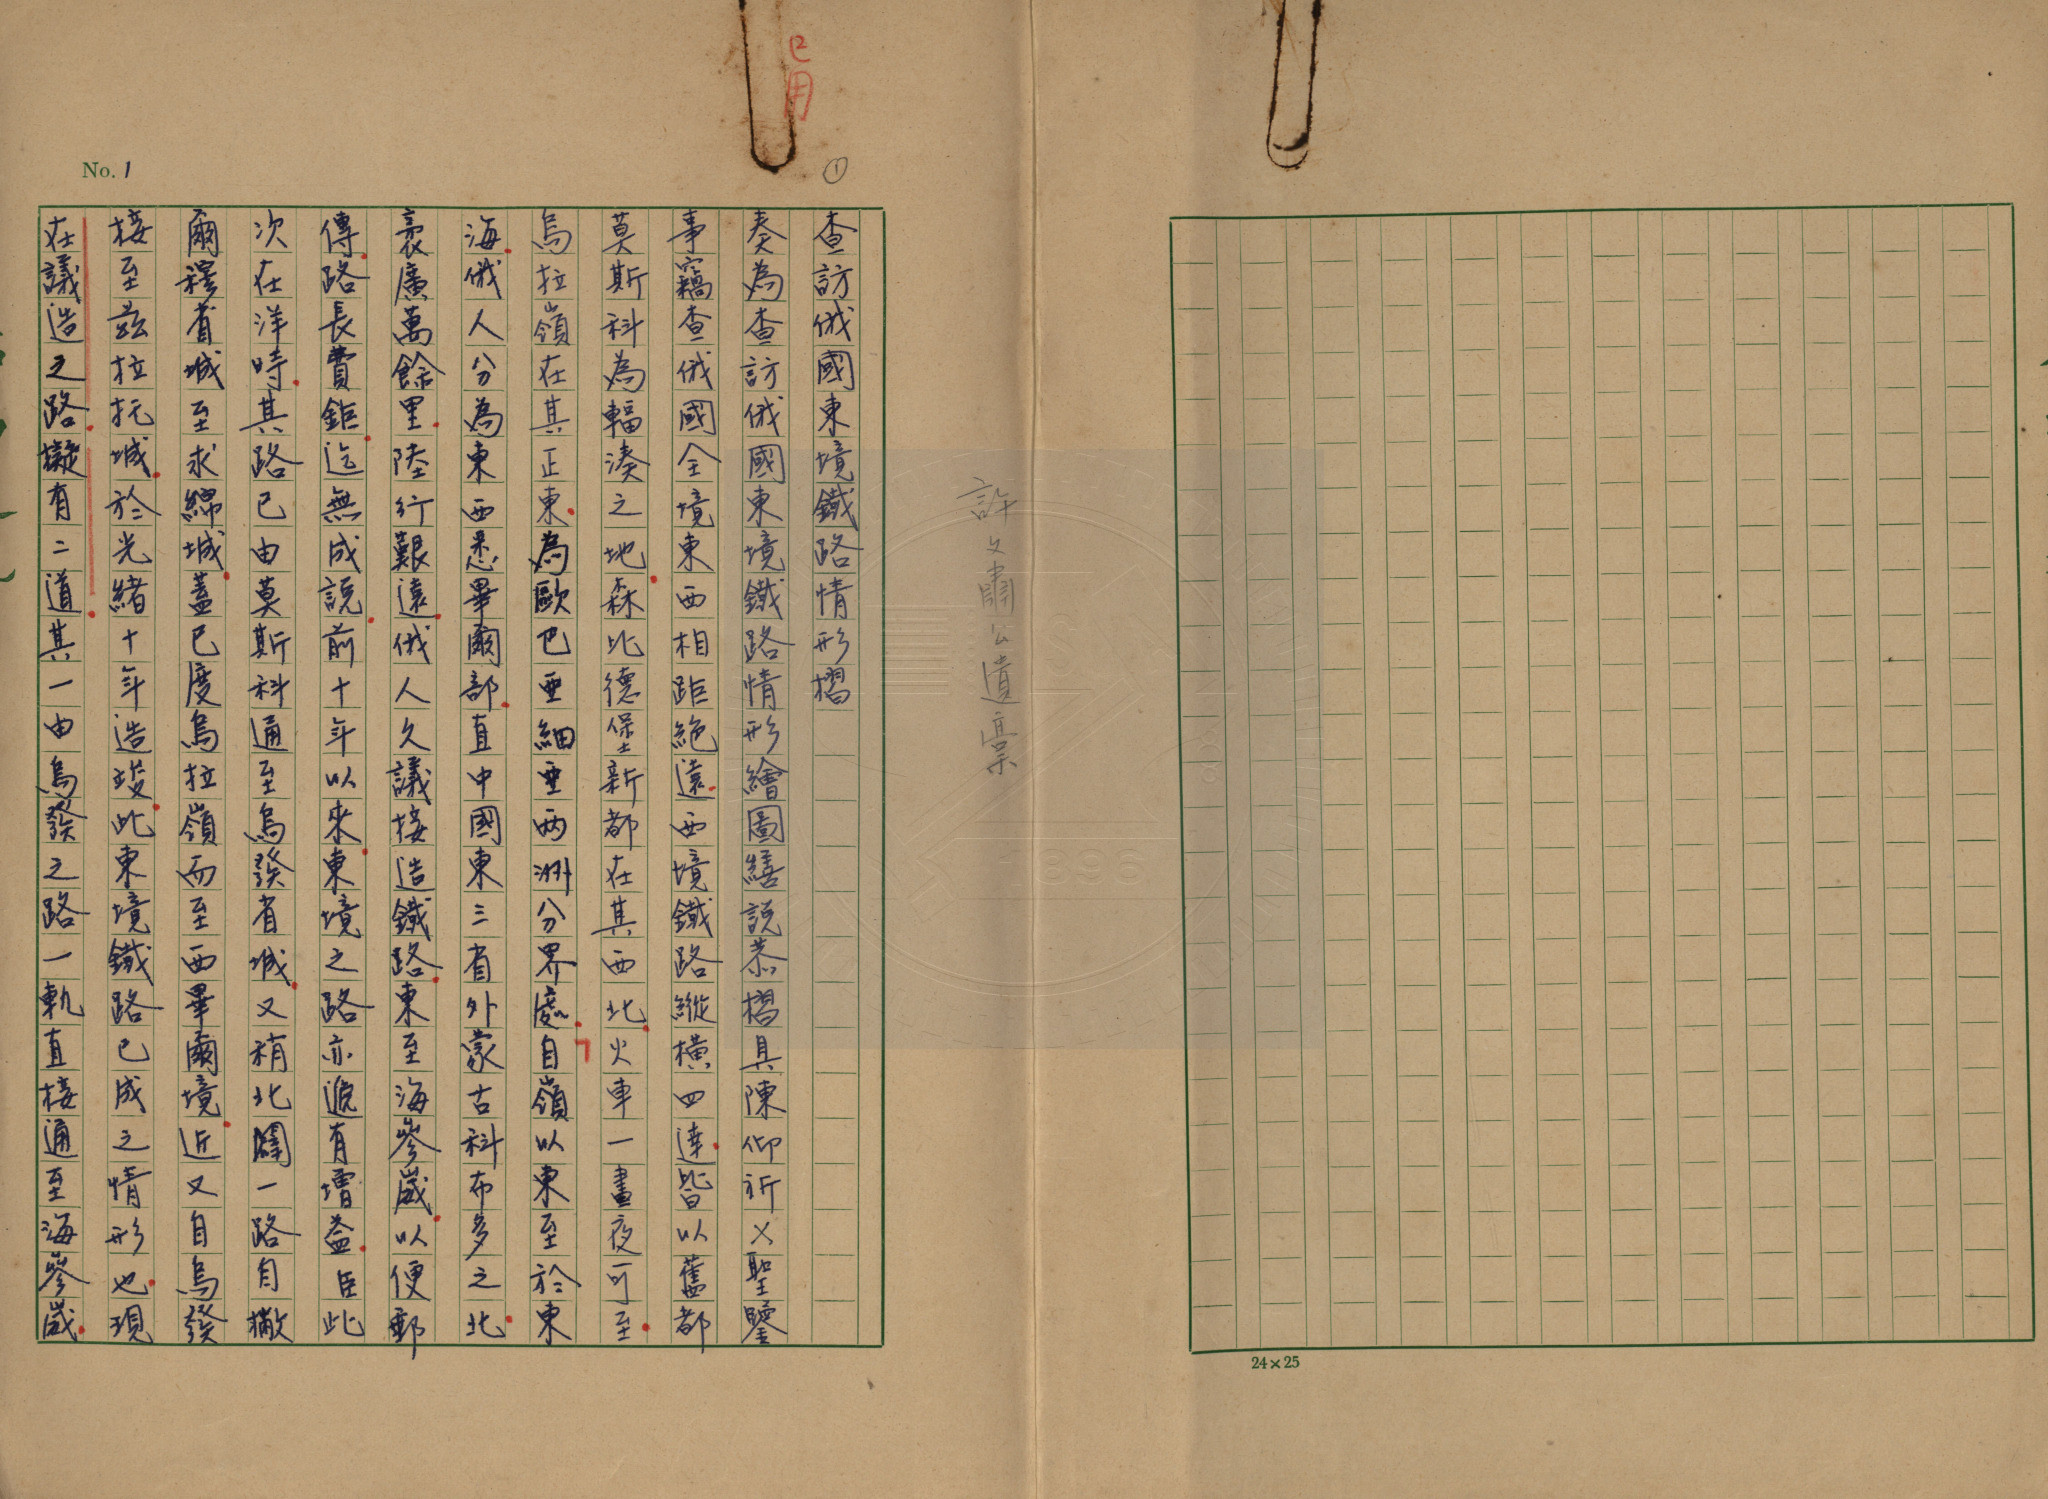 許文肅公遺稾
已用
①
No. 1
查訪俄國東境鐵路情形摺
奏為查訪俄國東境鐵路情形繪圖繕說恭摺具陳仰祈㐅聖鑒
事竊查俄國全境東西相距絕遠西境鐵路縱橫四達皆以舊都
莫斯科為輻湊之地森比德堡新都在其西北火車一晝夜可至
烏拉嶺在其正東為歐巴亜細亜兩洲分界處自嶺以東至於東
海俄人分為東西悉畢爾部直中國東三省外蒙古科布多之北
袤廣萬餘里陸行艱遠俄人久議接造鐵路東至海參崴以便郵
傳路長費鉅迄無成說前十年以來東境之路亦遞有增益臣此
次在洋時其路已由莫斯科通至烏發省城又稍北闢一路自撒
爾穆省城至求綿城蓋已度烏拉嶺而至西畢爾境近又自烏發
接至茲拉托城於光緒十年造竣此東境鐵路已成之情形也現
在議造之路擬有二道其一由烏發之路一軌直接通至海參崴
24×25
1896